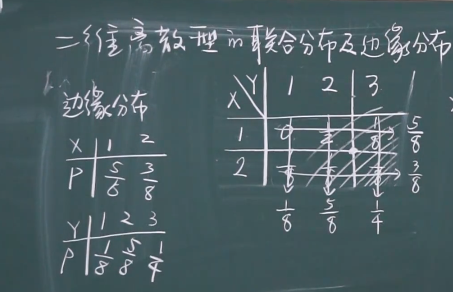 二维离散型的联合分布及边缘分布
边缘分布
X 1 2
P 5/6 3/8
Y 1 2 3
P 1/8 5/8 1/4
X Y 1 2 3
1 0 5/8
2 3/8
1/8 5/8 1/4